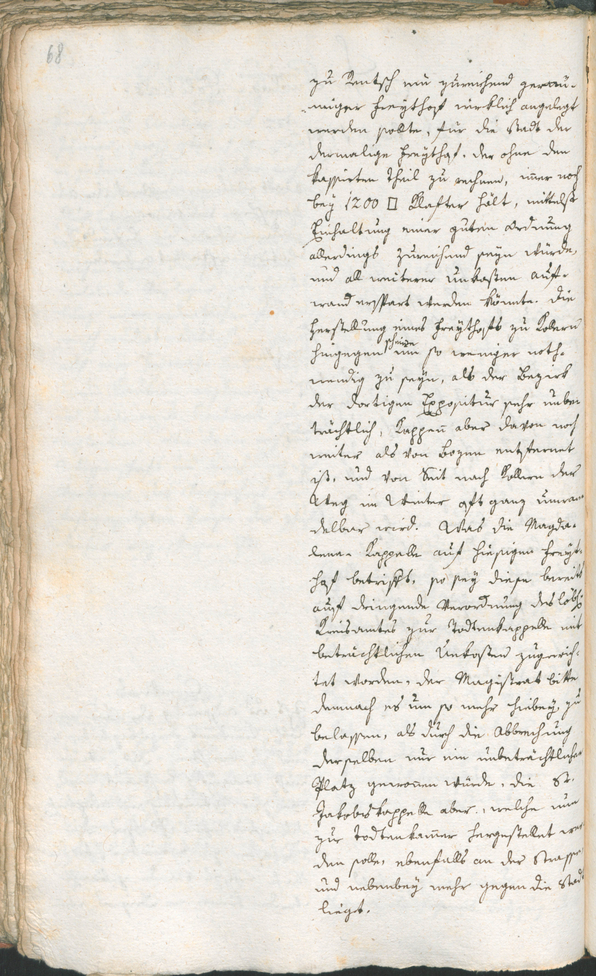 68
zu Rentsch ein zureichend geräu-
miger Freythof wirklich angelegt
werden sollte, für die Stadt der
dermalige Freythof, der ohne den
kassirten Theil zu rechnen, immer noch
bey 1200 □ Klafter hält, mittelst
Einhaltung einer guten Ordnung
allerdings zureichend seyn würde,
und all weiterer Unkosten auf-
wand ersparrt werden könnte. Die
Herstellung eines Freythofs zu Kollern
hingegen scheine um so weniger noth-
wendig zu seyn, als der Bezirk
der dortigen Expositur sehr unbe-
trächtlich, aber davon noch
weiter als von Bozen entfernet
ist, und von Seit nach Kollern der
Weg im Winter oft ganz unwan-
delbar wird. Was die Magda-
lena Kappelle auf hiesigen Freyt-
hof betrifft, so sey diese bereits
auf dringende Verordnung des löbl:
Kreisamtes zur Todtenkappelle mit
beträchtlichen Unkosten zugerich-
tet worden, der Magistrat bitte
demnach es um so mehr hiebey zu
belassen, als durch die Abbrechung
derselben nur ein unbeträchtlicher
Platz gewonnen würde, die St.
Jakobskappelle aber, welche nun
zur Todtenkammer hergestellet wer-
den solle, ebenfalls an der Strasse
und nebenbey mehr gegen die Stadt
liegt.